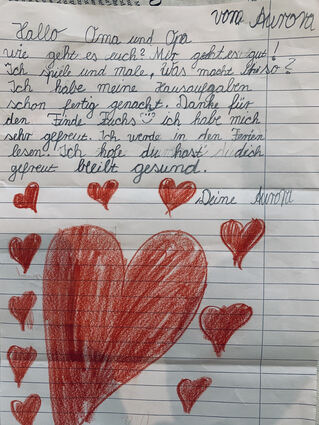 von Aurora
Hallo Oma und Opa
wie geht es euch? Mir geht es gut!
Ich spiele und male, was macht ihr so?
Ich habe meine Hausaufgaben
schon fertig gemacht. Danke für
den Finde Fuchs ich habe mich
sehr gefreut. Ich werde in den Ferien
lesen. Ich hofe du hast dich
gefreut bleibt gesund.
Deine Aurora